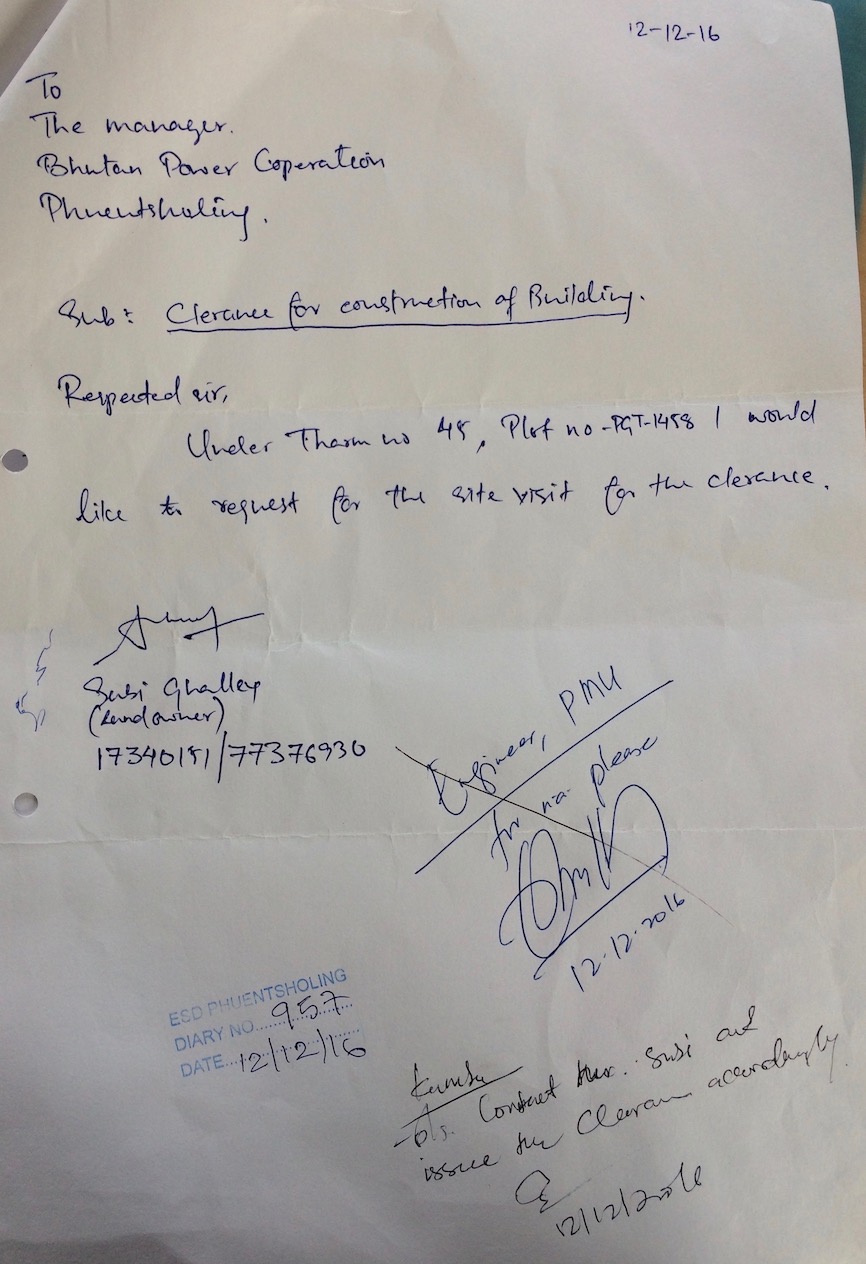 12-12-16
To
The manager.
Bhutan Power Coperation
Phuentsholing.
Sub: Clerance for construction of Building.
Respected sir,
Under Tharm no 45, Plot no-PGT-1458 I would
like to request for the site visit for the clerance.
Susi Ghalley
(Land owner)
17340151/77376930
Engineer, PMU
for n.a. please
12.12.2016
ESD PHUENTSHOLING
DIARY NO. 957
DATE 12/12/16
Contact Susi and
issue the accordingly
12/12/2016